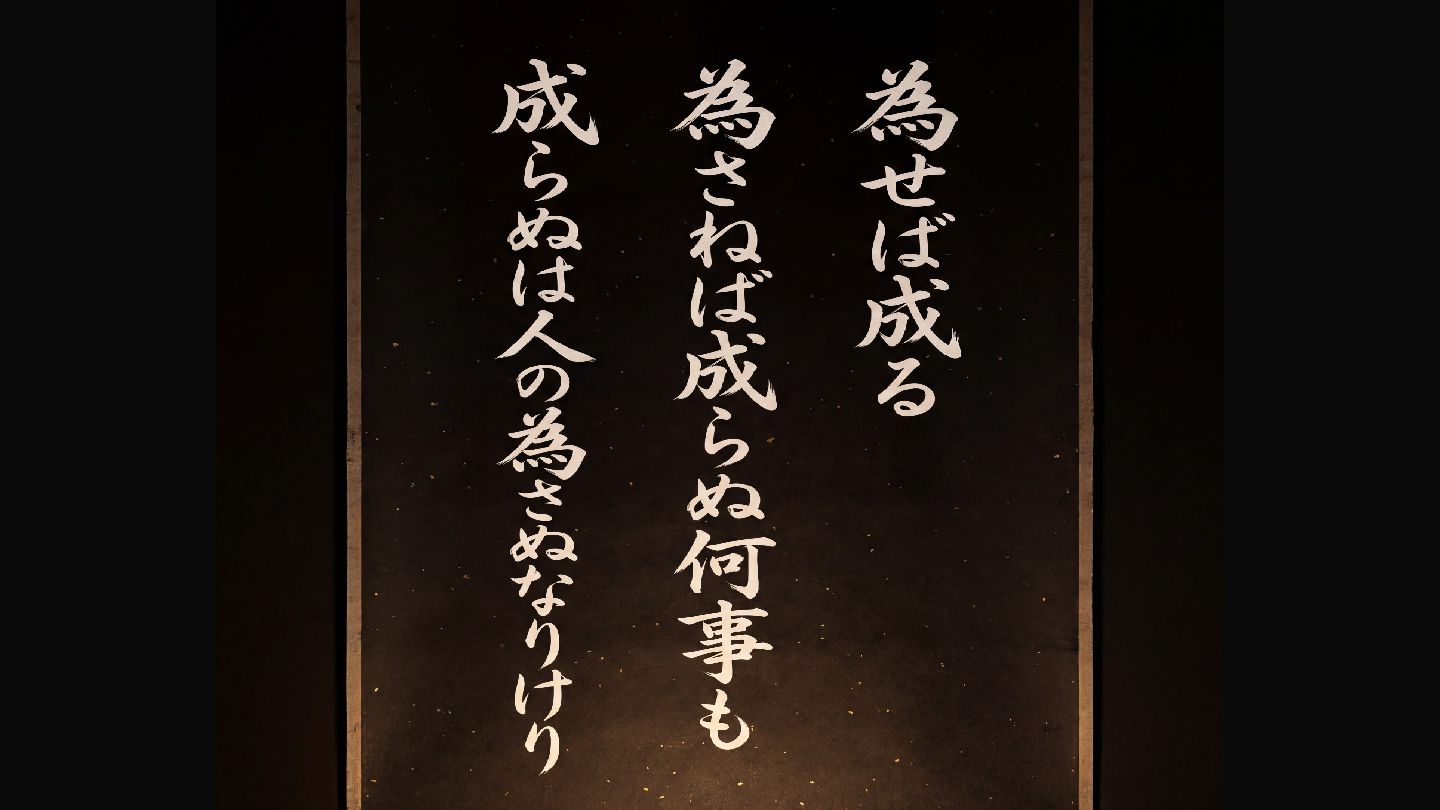 為せば成る
為さねば成らぬ何事も
成らぬは人の為さぬなりけり